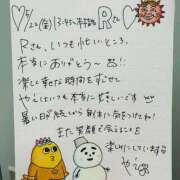 5/22(金)
Rさん♡
Rさん、いつも忙しいところ、
本当にありがとう〜!!
楽しく幸せな時間をすごせ
やえはいつも本当に嬉しいです
暑い日が続くから お体に気をつけてね!
また笑顔で会えることを
楽しみにしています
やえ